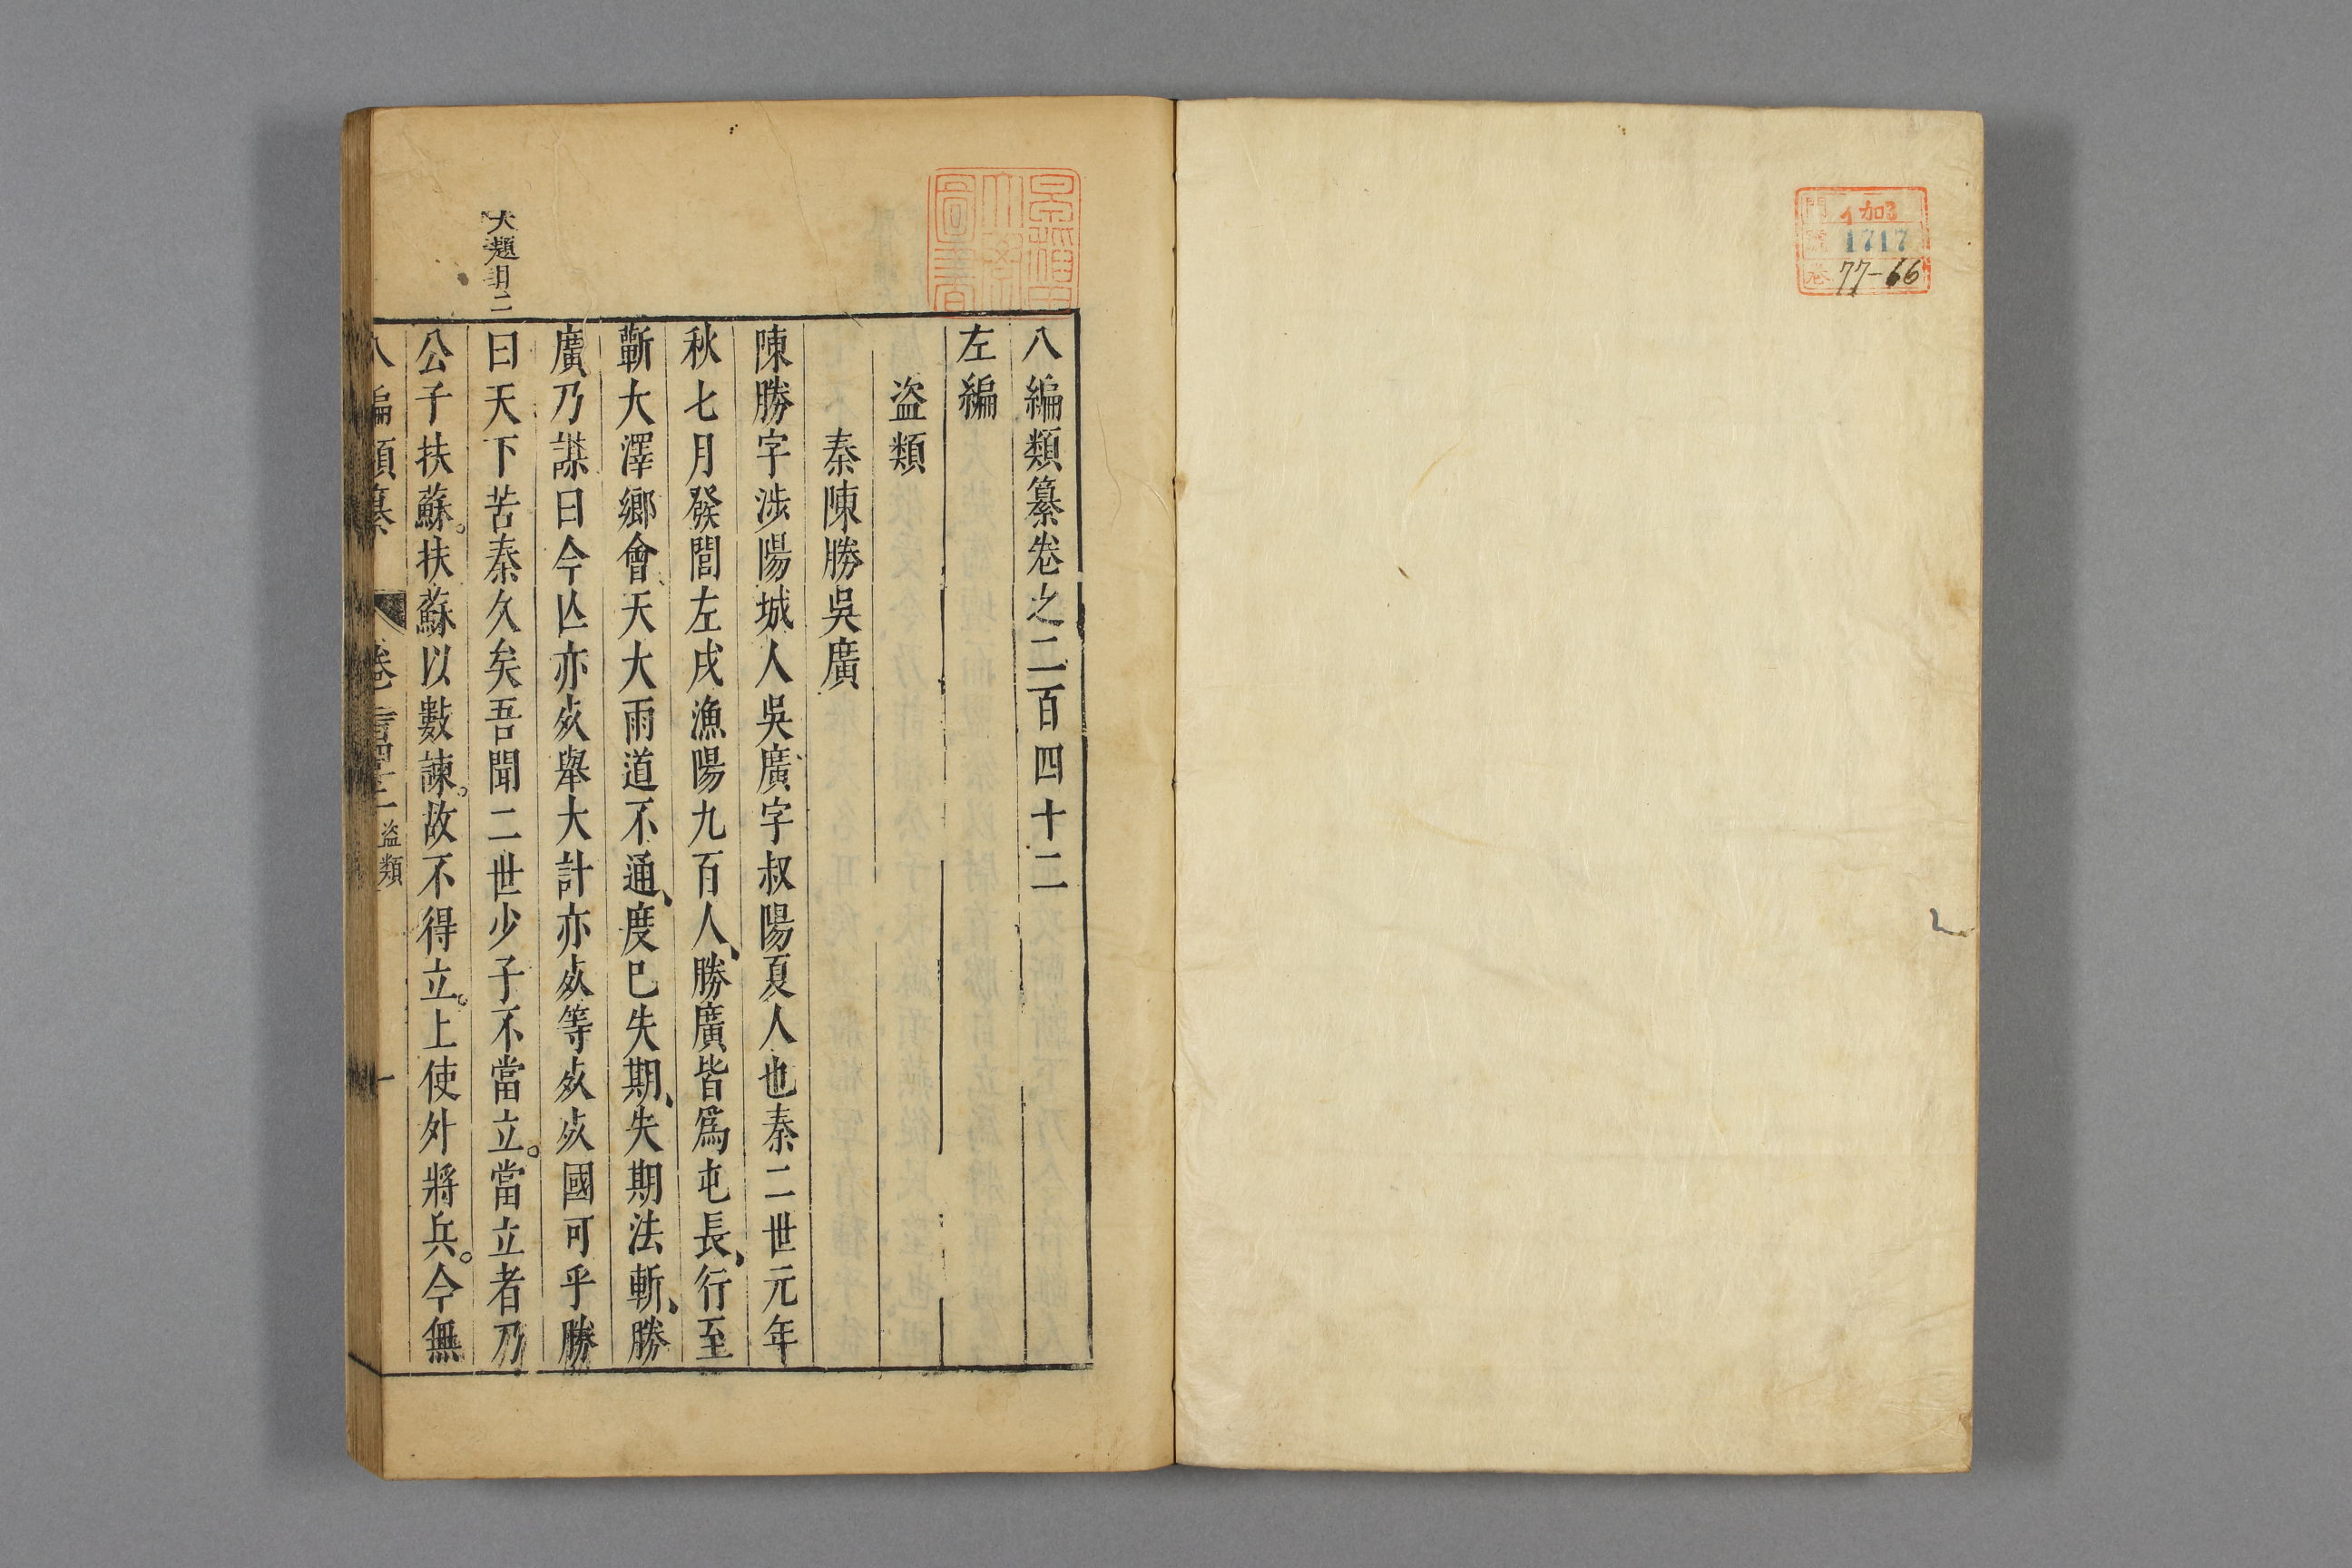 伽
1717
77-66
早稲田
大學
圖書
八編類纂卷之二百四十二
左編
盗類
秦陳勝吳廣
陳勝字涉陽城人吳廣字叔陽夏人也秦二世元年
秋七月發閭左戍漁陽九百人、勝廣皆爲屯長、行至
蘄大澤鄉會天大雨道不通、度已失期、失期法斬、勝
廣乃謀曰今亾亦歿舉大計亦歿等歿歿國可乎勝
曰天下苦秦久矣吾聞二世少子不當立。當立者乃
公子扶蘇。扶蘇以數諫。故不得立。上使外將兵。今無
八編類纂 卷二百四十二 盗類 一